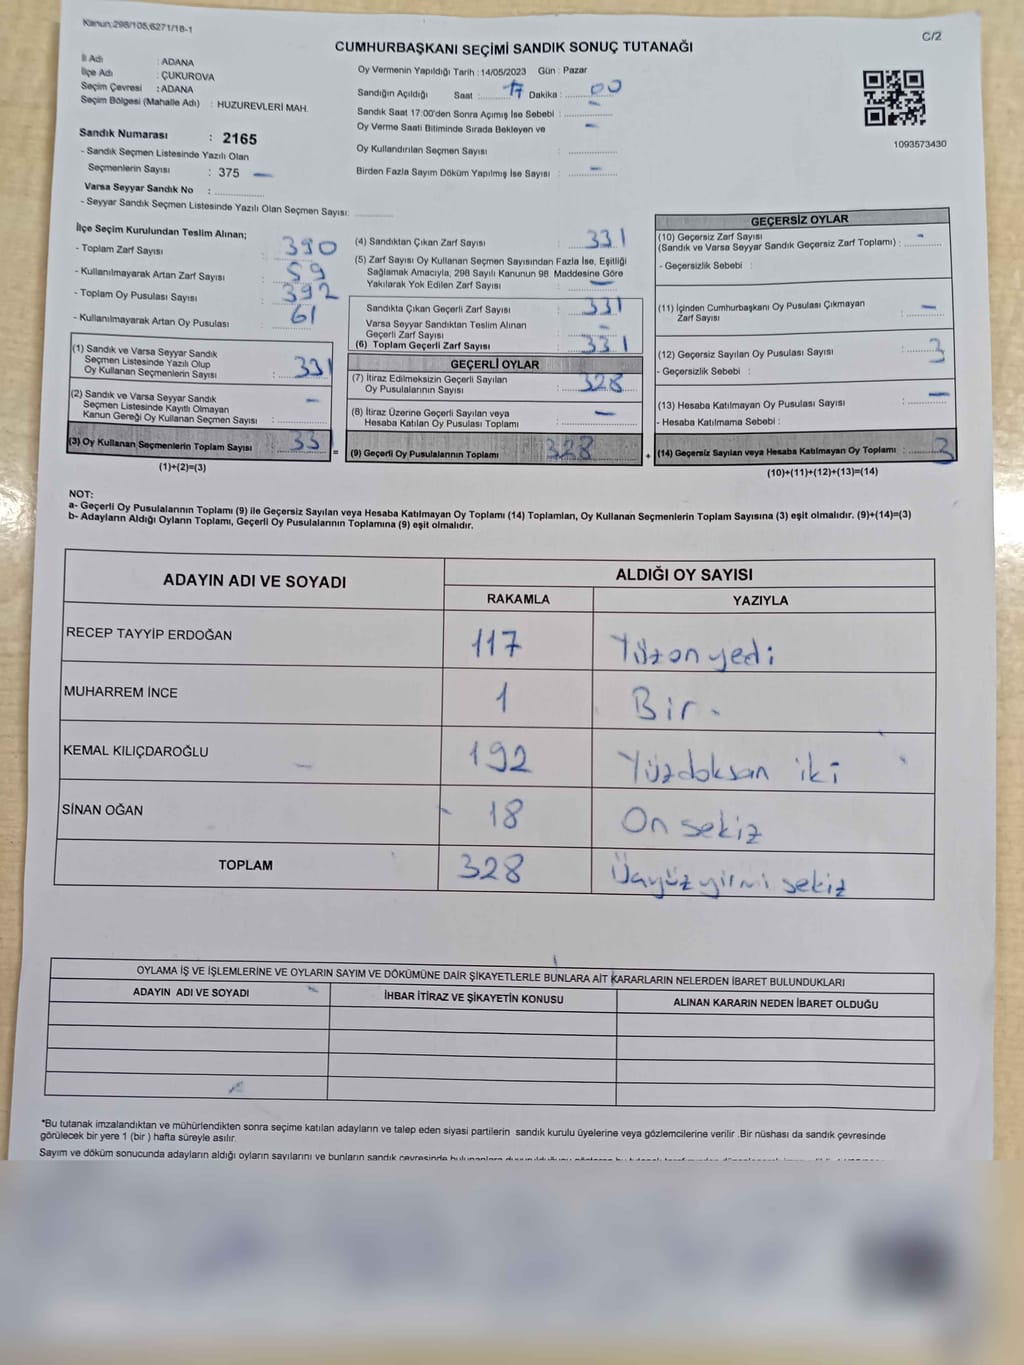 Kanun;298/105,6271/18-1
C/2
CUMHURBAŞKANI SEÇİMİ SANDIK SONUÇ TUTANAĞI
İl Adı : ADANA
İlçe Adı : ÇUKUROVA
Seçim Çevresi : ADANA
Seçim Bölgesi (Mahalle Adı) : HUZUREVLERİ MAH.
Sandık Numarası : 2165
- Sandık Seçmen Listesinde Yazılı Olan
Seçmenlerin Sayısı : 375 —
Varsa Seyyar Sandık No :
- Seyyar Sandık Seçmen Listesinde Yazılı Olan Seçmen Sayısı:
Oy Vermenin Yapıldığı Tarih : 14/05/2023 Gün : Pazar
Sandığın Açıldığı Saat : 17 Dakika : 00
Sandık Saat 17:00'den Sonra Açımış İse Sebebi : —
Oy Verme Saati Bitiminde Sırada Bekleyen ve —
Oy Kullandırılan Seçmen Sayısı :
Birden Fazla Sayım Döküm Yapılmış İse Sayısı : —
1093573430
İlçe Seçim Kurulundan Teslim Alınan;
- Toplam Zarf Sayısı : 390
- Kullanılmayarak Artan Zarf Sayısı : 59
- Toplam Oy Pusulası Sayısı : 392
- Kullanılmayarak Artan Oy Pusulası : 61
(1) Sandık ve Varsa Seyyar Sandık
Seçmen Listesinde Yazılı Olup
Oy Kullanan Seçmenlerin Sayısı : 331
(2) Sandık ve Varsa Seyyar Sandık
Seçmen Listesinde Kayıtlı Olmayan
Kanun Gereği Oy Kullanan Seçmen Sayısı : —
(3) Oy Kullanan Seçmenlerin Toplam Sayısı : 331
(1)+(2)=(3)
=
(4) Sandıktan Çıkan Zarf Sayısı : 331
(5) Zarf Sayısı Oy Kullanan Seçmen Sayısından Fazla İse, Eşitliği
Sağlamak Amacıyla, 298 Sayılı Kanunun 98 Maddesine Göre
Yakılarak Yok Edilen Zarf Sayısı : —
Sandıkta Çıkan Geçerli Zarf Sayısı : 331
Varsa Seyyar Sandıktan Teslim Alınan
Geçerli Zarf Sayısı : —
(6) Toplam Geçerli Zarf Sayısı : 331
GEÇERLİ OYLAR
(7) İtiraz Edilmeksizin Geçerli Sayılan
Oy Pusulalarının Sayısı : 328
(8) İtiraz Üzerine Geçerli Sayılan veya
Hesaba Katılan Oy Pusulası Toplamı : —
(9) Geçerli Oy Pusulalarının Toplamı : 328
+
GEÇERSİZ OYLAR
(10) Geçersiz Zarf Sayısı
(Sandık ve Varsa Seyyar Sandık Geçersiz Zarf Toplamı) : -
- Geçersizlik Sebebi :
(11) İçinden Cumhurbaşkanı Oy Pusulası Çıkmayan
Zarf Sayısı : —
(12) Geçersiz Sayılan Oy Pusulası Sayısı : 3
- Geçersizlik Sebebi :
(13) Hesaba Katılmayan Oy Pusulası Sayısı : —
- Hesaba Katılmama Sebebi :
(14) Geçersiz Sayılan veya Hesaba Katılmayan Oy Toplamı : 3
(10)+(11)+(12)+(13)=(14)
NOT:
a- Geçerli Oy Pusulalarının Toplamı (9) ile Geçersiz Sayılan veya Hesaba Katılmayan Oy Toplamı (14) Toplamları, Oy Kullanan Seçmenlerin Toplam Sayısına (3) eşit olmalıdır. (9)+(14)=(3)
b- Adayların Aldığı Oyların Toplamı, Geçerli Oy Pusulalarının Toplamına (9) eşit olmalıdır.
ADAYIN ADI VE SOYADI
ALDIĞI OY SAYISI
RAKAMLA YAZIYLA
RECEP TAYYİP ERDOĞAN 117 Yüzon yedi
MUHARREM İNCE 1 Bir.
KEMAL KILIÇDAROĞLU 192 Yüzdoksan iki
SİNAN OĞAN 18 On sekiz
TOPLAM 328 Üçyüz yirmi sekiz
OYLAMA İŞ VE İŞLEMLERİNE VE OYLARIN SAYIM VE DÖKÜMÜNE DAİR ŞİKAYETLERLE BUNLARA AİT KARARLARIN NELERDEN İBARET BULUNDUKLARI
ADAYIN ADI VE SOYADI İHBAR İTİRAZ VE ŞİKAYETİN KONUSU ALINAN KARARIN NEDEN İBARET OLDUĞU
*Bu tutanak imzalandıktan ve mühürlendikten sonra seçime katılan adayların ve talep eden siyasi partilerin sandık kurulu üyelerine veya gözlemcilerine verilir .Bir nüshası da sandık çevresinde
görülecek bir yere 1 (bir ) hafta süreyle asılır.
Sayım ve döküm sonucunda adayların aldığı oyların sayılarını ve bunların sandık çevresinde